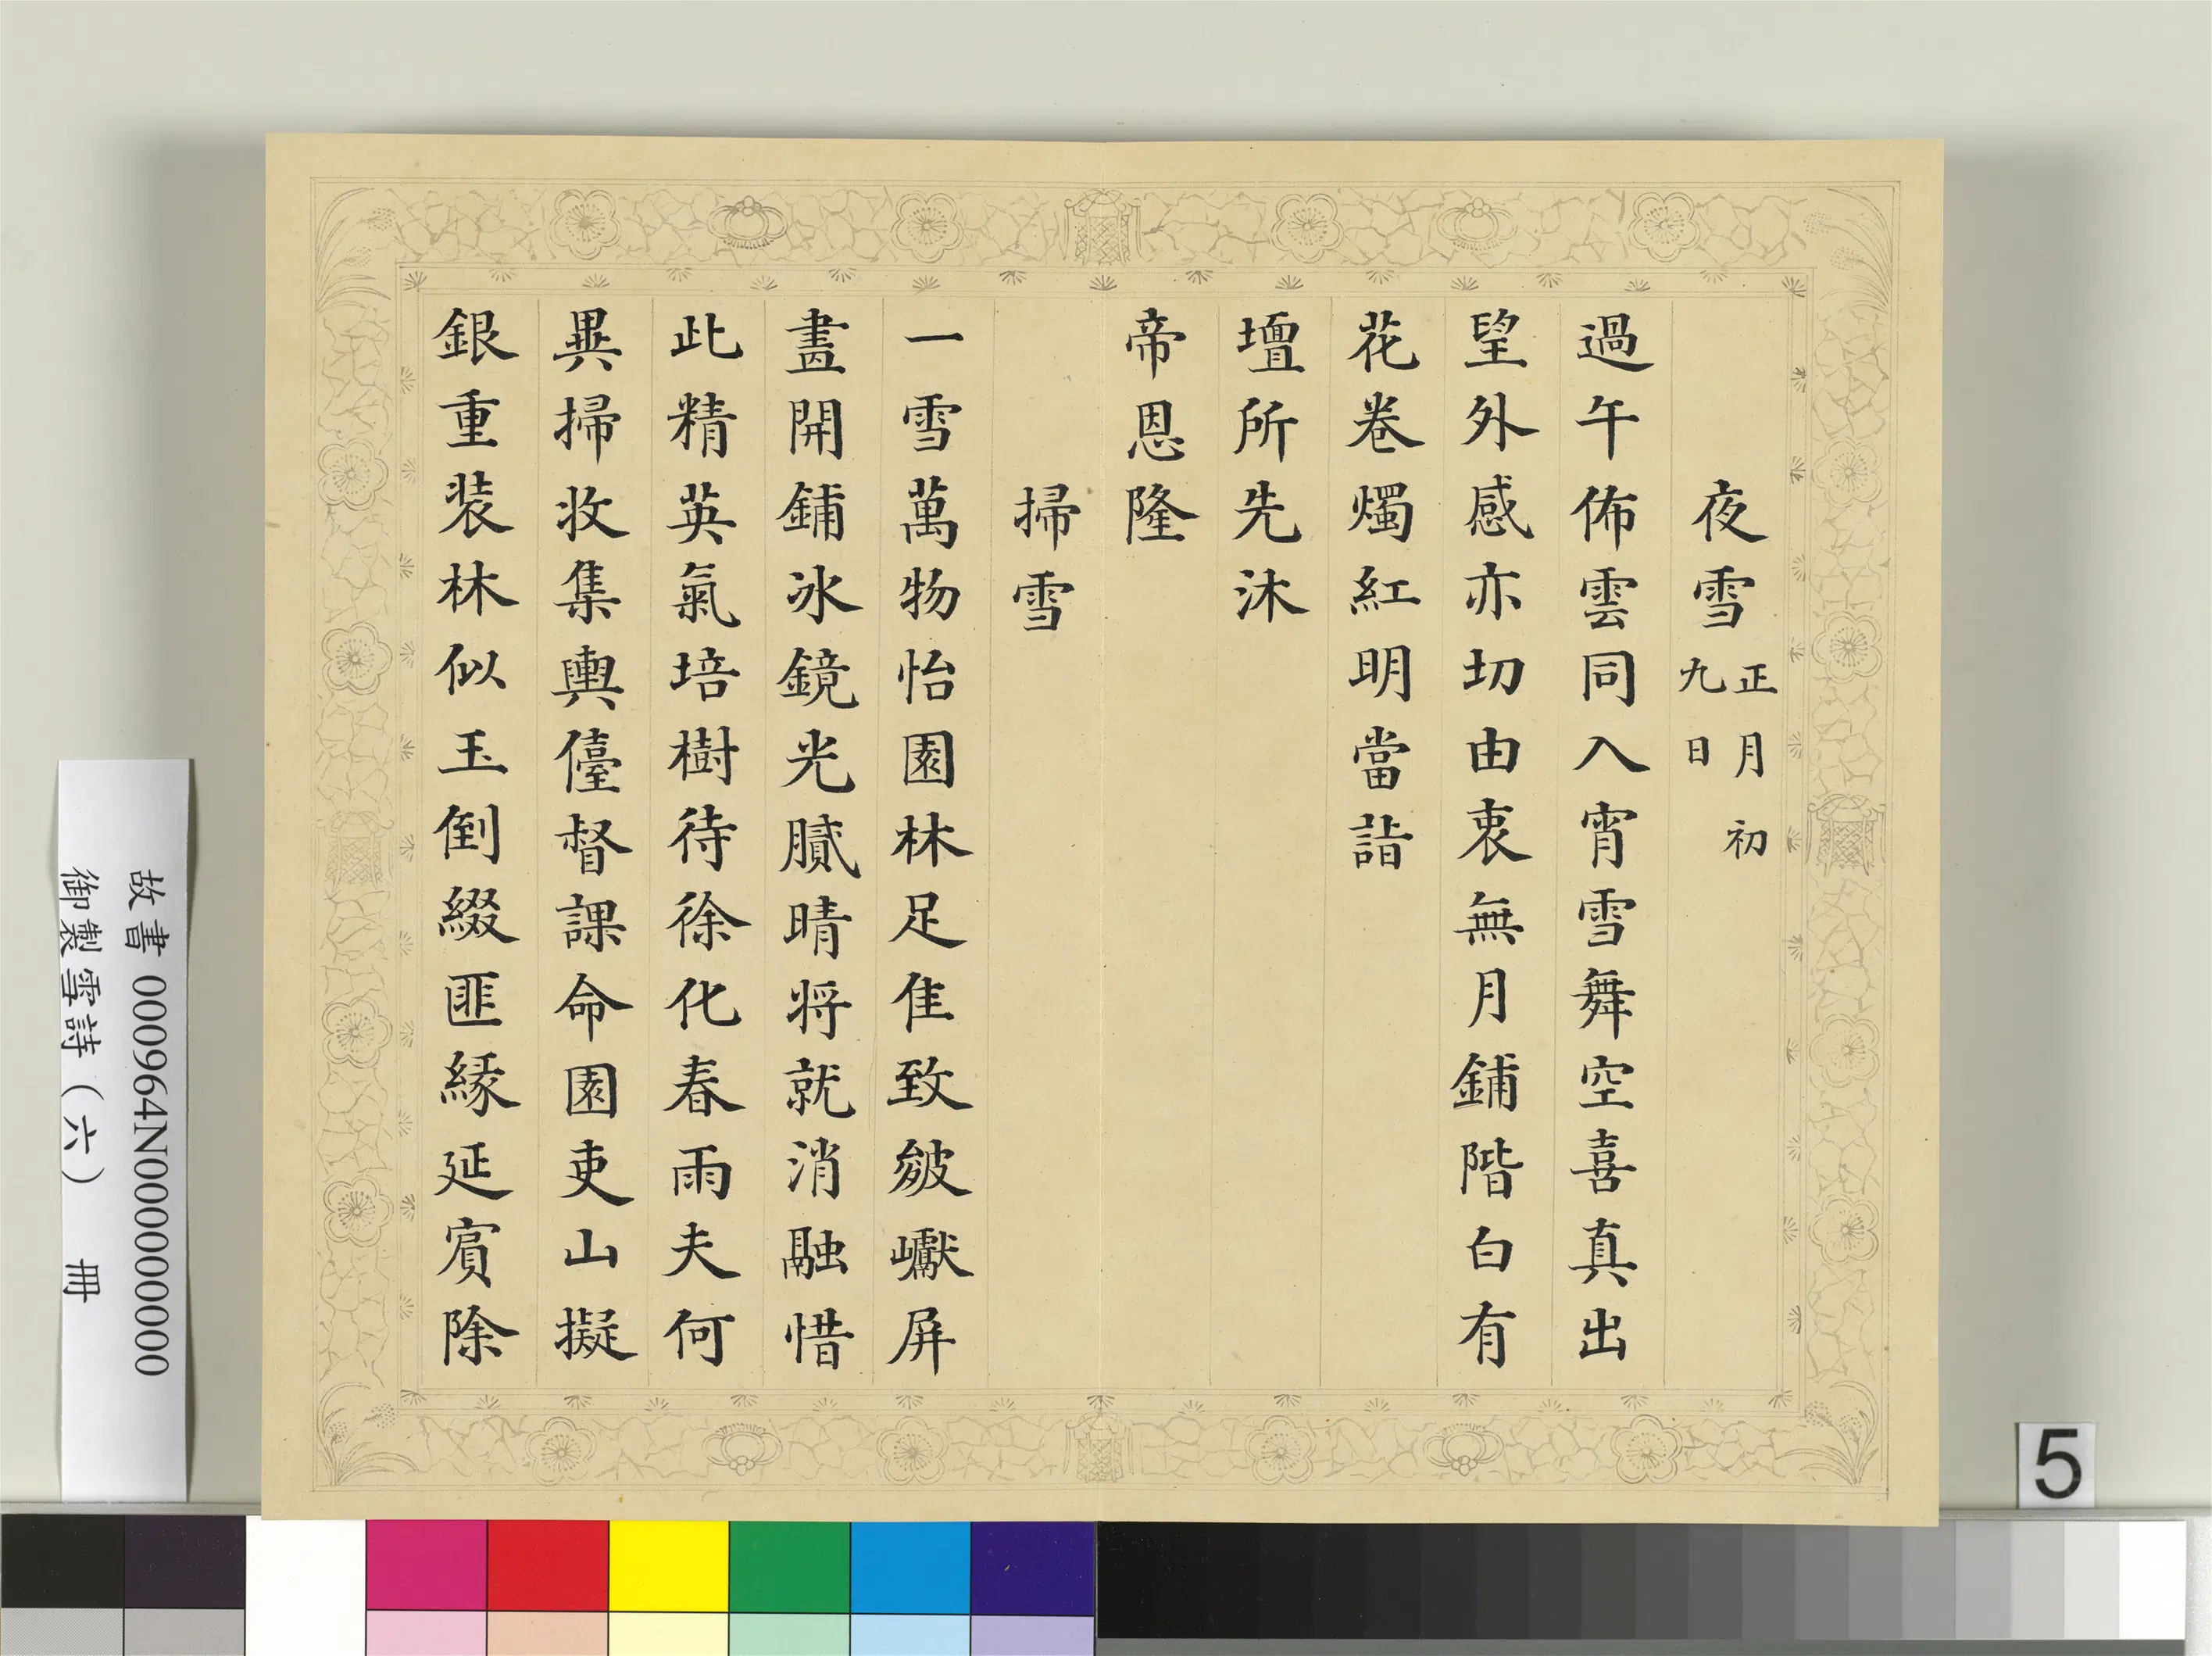 夜雪正月初九日
過午佈雲同入宵雪舞空喜真出
望外感亦切由衷無月鋪階白有
花卷燭紅明當詣
壇所先沐
帝恩隆
掃雪
一雪萬物怡園林足佳致皴巘屏
畫開鋪冰鏡光膩晴將就消融惜
此精英氣培樹待徐化春雨夫何
異掃收集輿儓督課命園吏山擬
銀重裝林似玉倒綴匪緣延賓除
故書 000964N000000000
御製雪詩（六） 冊
5